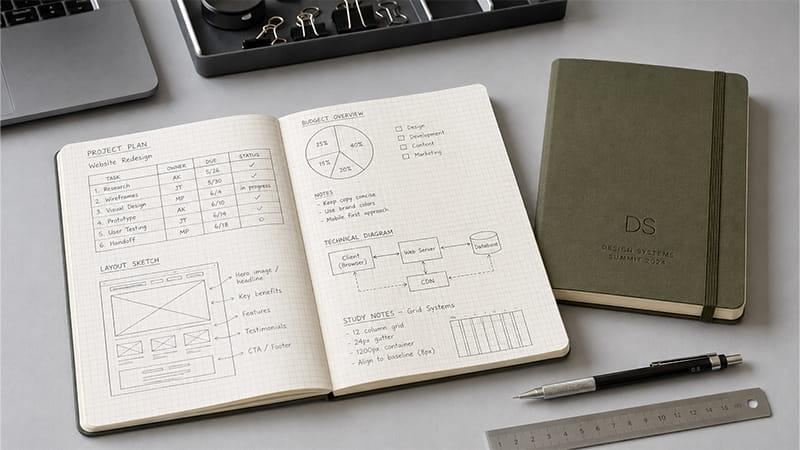 PROJECT PLAN
Website Redesign
TASK OWNER DUE STATUS
1. Research AK 5/26 ✓
2. Wireframes JT 5/30 ✓
3. Visual Design MP 6/4 in progress
4. Prototype AK 6/10 ✓
5. User Testing JT 6/14 ✓
6. Handoff MP 6/18 ○
LAYOUT SKETCH
Hero image /
headline
Key benefits
Features
Testimonials
CTA / Footer
BUDGECT OVERVIEW
25% 40%
15% 20%
Design
Development
Content
Marketing
NOTES
- Keep copy concise
- Use brand colors
- Mobile first approach
TECHNICAL DIAGRAM
Client
(Browser)
Web Server
Database
CDN
STUDY NOTES - Grid Systems
- 12 column grid
- 24px gutter
- 1200px container
- Align to baseline (8px)
DS
DESIGN SYSTEMS
SUMMIT 2024